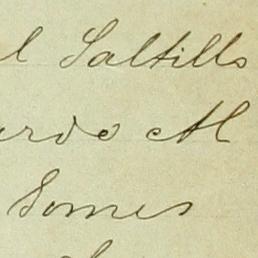 l Saltillo
ardo M
Somes